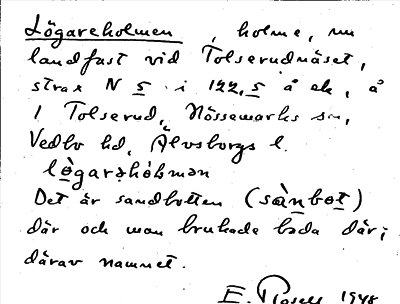 Lögareholmen, holme, nu
landfast vid Tolserudnäset,
strax N 5 i 122,5 å ek, å
1 Tolserud, Nössemarks sn,
Vedbo hd, Älvsborgs l.
lògarəhòlmən
Det är sandbotten (sàn̥bot)
där och man brukade bada där;
därav namnet.
E. Rosell 1948